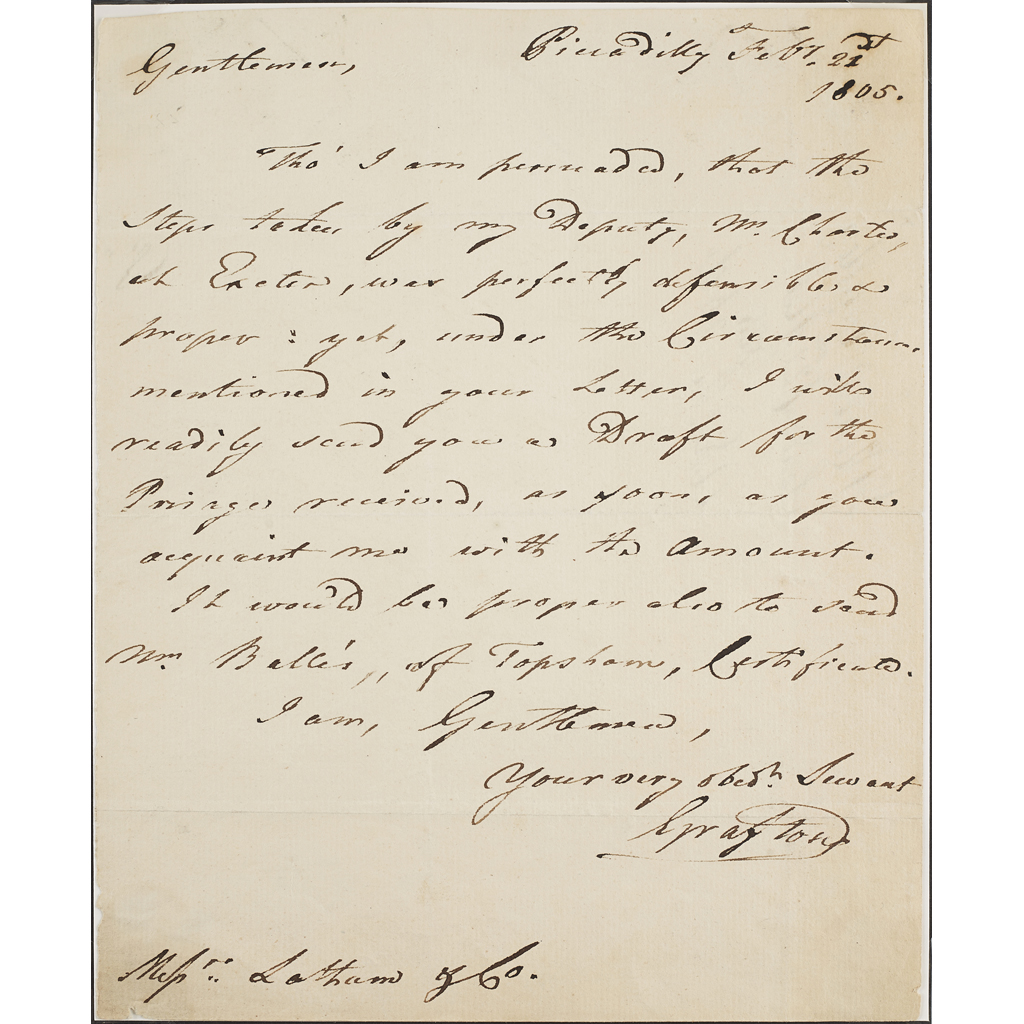 Piccadilly Feby. 21st
1805.
Gentlemen,
Tho' I am persuaded, that the
Steps taken by my Deputy, Mr. Charter,
at Exeter, was perfectly defensible &
proper : yet, under the Circumstances
mentioned in your Letter, I will
readily send you a Draft for the
Prisage received, as soon, as you
acquaint me with the amount.
It would be proper also to send
Wm. Balle's, of Topsham, Certificate.
I am, Gentlemen,
Your very obedt. Servant
Grafton
Messrs. Latham & Co.